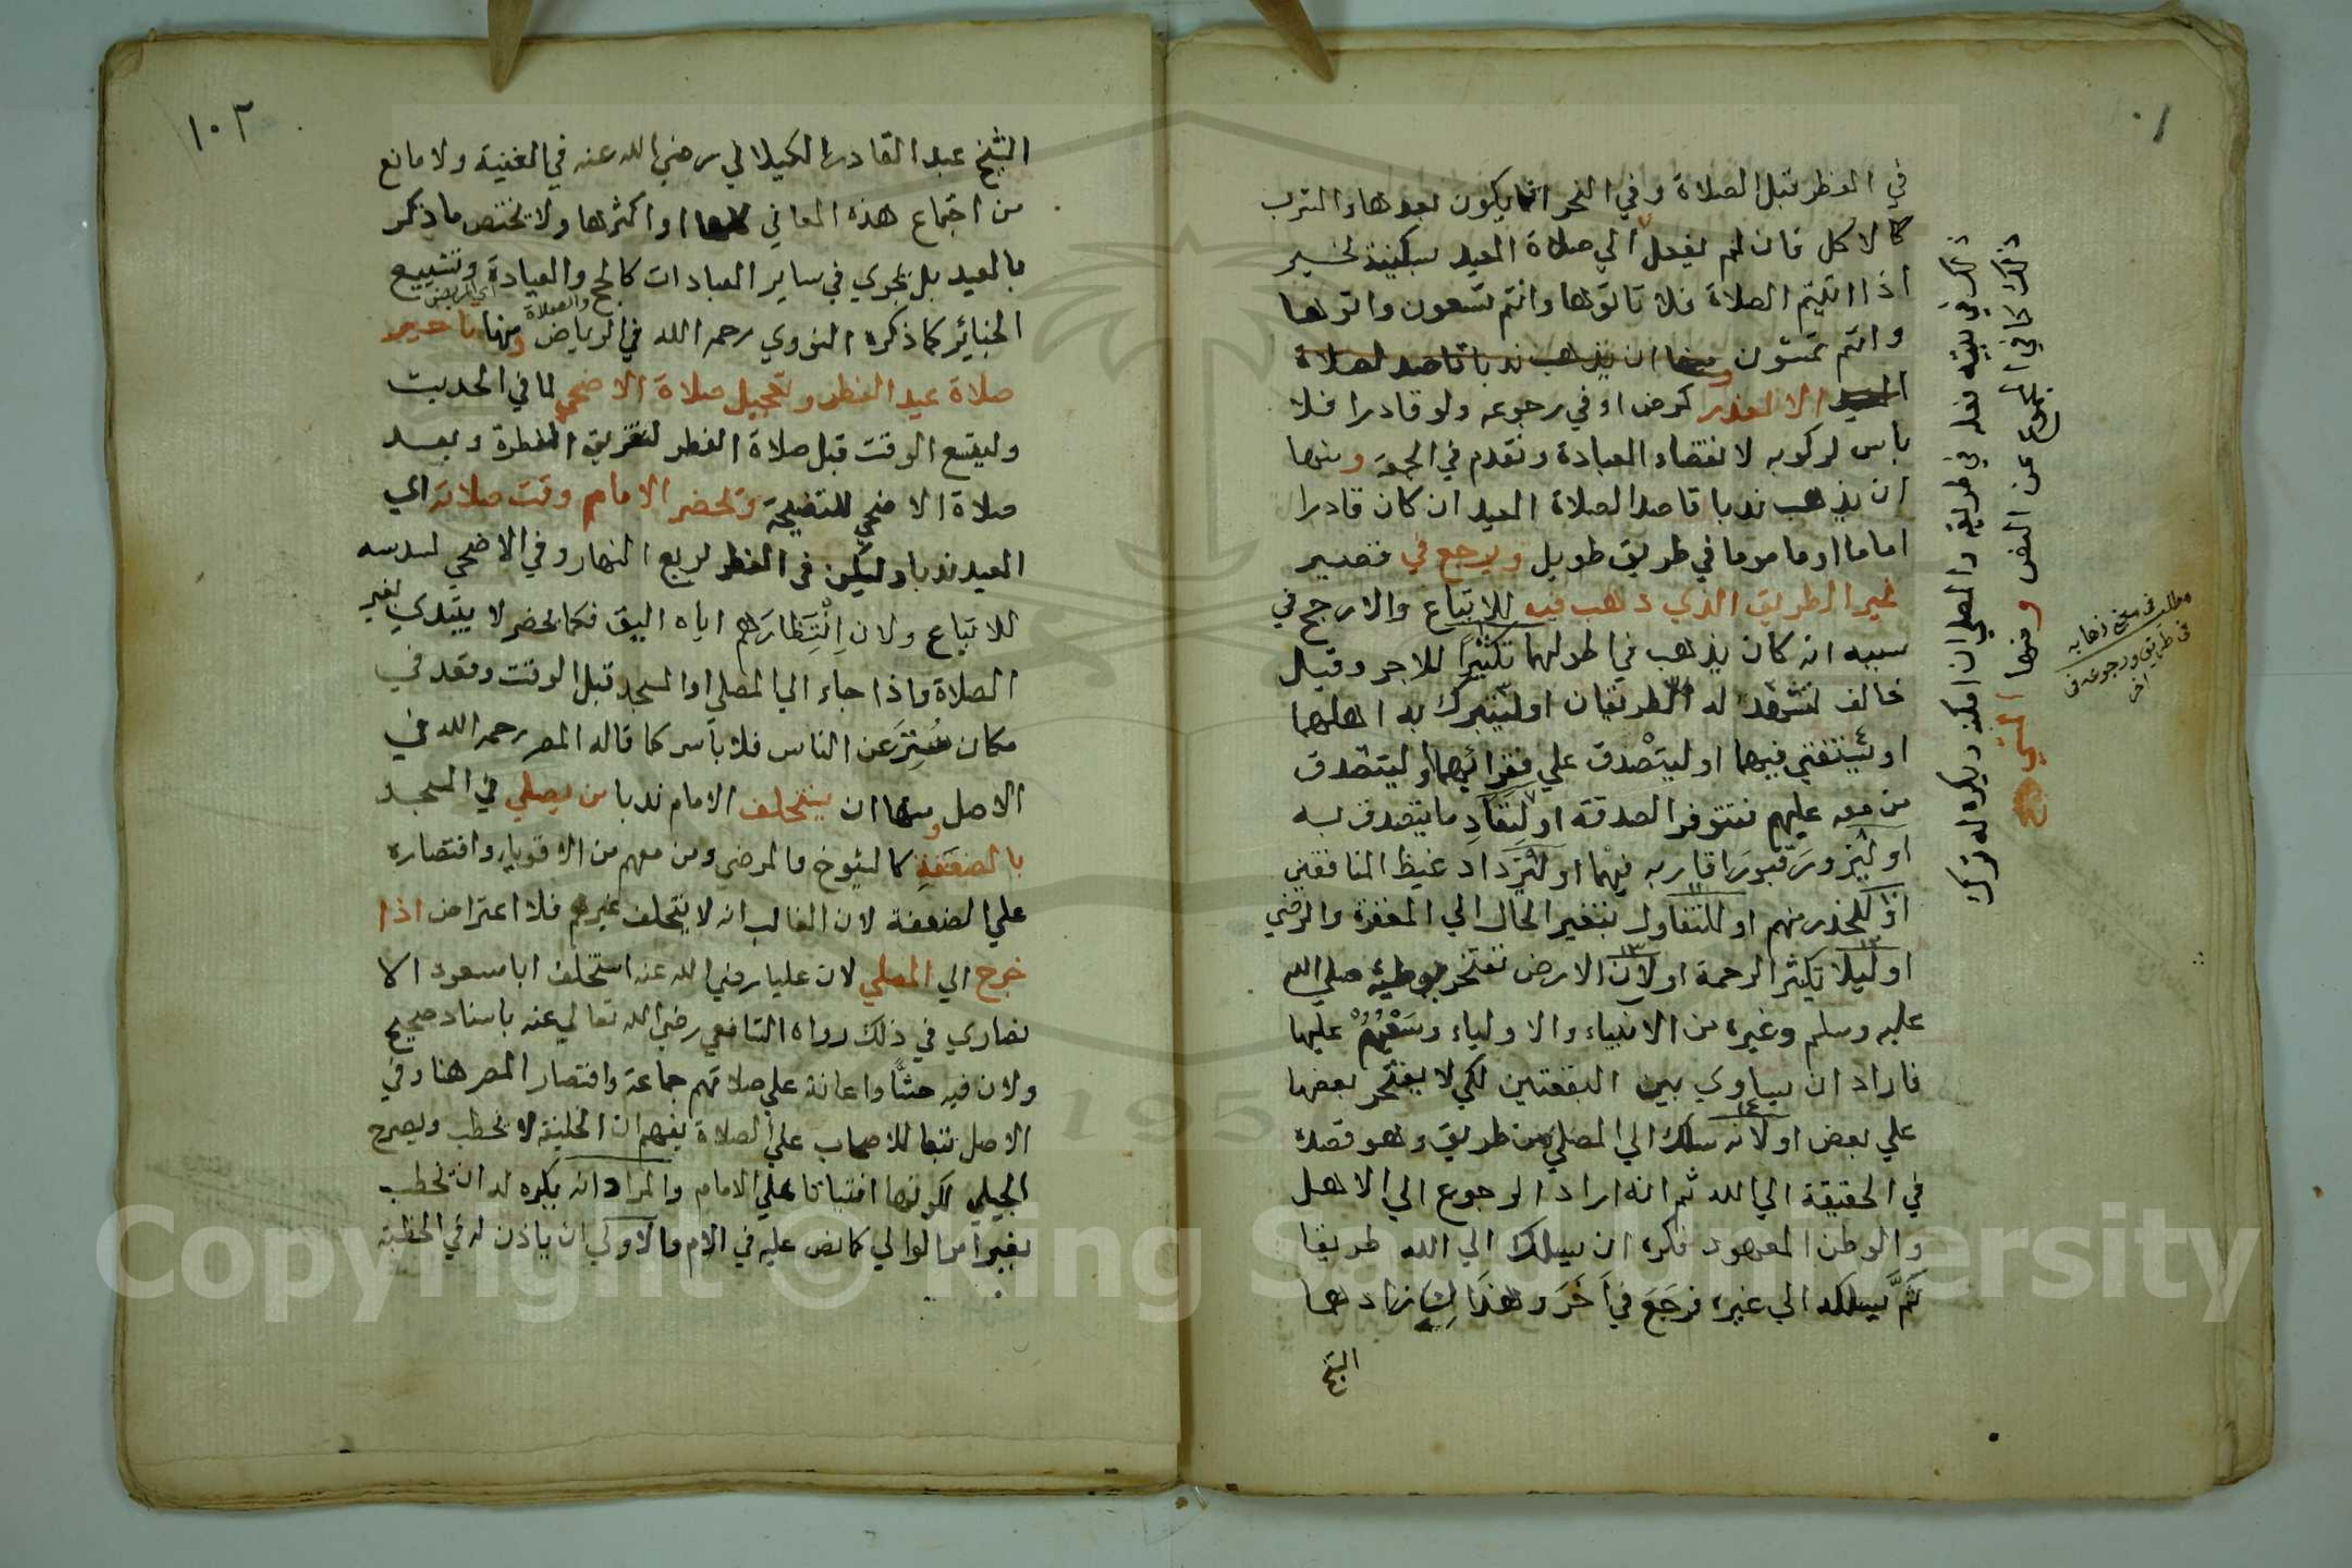 في الفطر قبل الصلاة وفي النحر انما يكون بعدها والشرب
كالاكل فان لم يفعل الي صلاة العيد بسكينة لخبر
اذا اتيتم الصلاة فلا تاتوها وانتم تسعون واتوها
وانتم تمشون ومنها ان يذهب ندبا قاصد لصلاة
العيد الا لعذر كمرض او في رجوعه ولو قادرا فلا
باس لركوبه لانقضاء العبادة وتقدم في الجمعة ومنها
ان يذهب ندبا قاصدا لصلاة العيد ان كان قادرا
اماما او ماموما في طريق طويل ويرجع في قصير
غير الطريق الذي ذهب فيه للاتباع والارجح في
سببه انه كان يذهب في اطولهما تكثيرا للاجر وقيل
خالف لتشهد له الطريقان او ليتبرك به اهلهما
او ليستفتي فيهما او ليتصدق علي فقرائهما او ليتصدق
من معه عليهم فتتوفر الصدقة او لنفاد ما يتصدق به
او ليزور قبور اقاربه فيهما او ليزداد غيظ المنافقين
او للحذر منهم او للتفاول بتغير الحال الي المغفرة والرضي
او ليلا تكثر الرحمة او لان الارض تفتخر بوطئه صلي الله
عليه وسلم وغيره من الانبياء والاولياء وسعيهم عليها
فاراد ان يساوي بين البقعتين لكي لا يفتخر بعضها
علي بعض او لانه سلك الي المصلي من طريق وهو قصده
في الحقيقة الي الله ثم انه اراد الرجوع الي الاهل
والوطن المعهود فكره ان يسلك الي الله طريقا
ثم يسلكه الي غيره فرجع في آخر وهذا زادها
الشيخ
ذلك في بيته فعله في طريقه والمصلي ان امكنه ويكره له ترك
ذلك كما في المجموع عن النص ومنها المشي
مطلب في ذهابه
في طريق ورجوعه في
اخر
١٠٢
الشيخ عبد القادر الكيلاني رضي الله عنه في الغنية ولا مانع
من اجتماع هذه المعاني كلها او اكثرها ولا يختص ما ذكر
بالعيد بل يجري في ساير العبادات كالحج والعيادة وتشييع
اي المريض والصلاة
الجنائز كما ذكره النووي رحمه الله في الرياض ومنها تاخير
صلاة عيد الفطر وتعجيل صلاة الاضحي لما في الحديث
وليتسع الوقت قبل صلاة الفطر لتفريق الفطرة وبعد
صلاة الاضحي للتضحية وتحضر الامام وقت صلاته اي
العيد ندبا وليكن في الفطر لربع النهار وفي الاضحي لسدسه
للاتباع ولان انتظارهم اياه اليق فكما يحضر لا يبتدي بغير
الصلاة واذا جاء الي المصلي او المسجد قبل الوقت وقعد في
مكان مستتر عن الناس فلا باس كما قاله المصر رحمه الله في
الاصل ومنها ان يستخلف الامام ندبا من يصلي في المسجد
بالضعفة كالشيوخ والمرضي ومن معهم من الاقوياء واقتصاره
علي الضعفة لان الغالب انه لا يتخلف غيرهم فلا اعتراض اذا
خرج الي المصلي لان عليا رضي الله عنه استخلف ابا مسعود الا
نصاري في ذلك رواه الشافعي رضي الله تعالي عنه باسناد صحيح
ولان فيه حثا واعانة علي صلاتهم جماعة واقتصار المصر هنا وفي
الاصل تبعا للاصحاب علي الصلاة يفهم ان الخليفة لا يخطب وبه صرح
الجيلي لكونها افتياتا علي الامام والمراد انه يكره له ان يخطب
بغير امر الوالي كما نص عليه في الام والاولي ان ياذن له في الخطبة